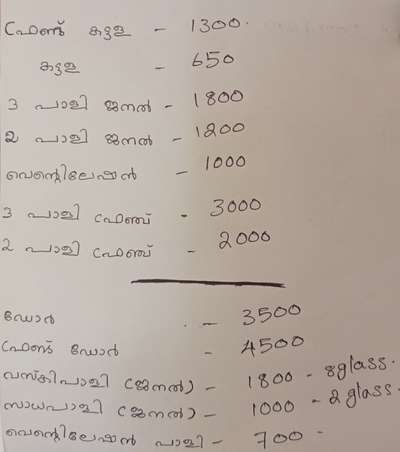 ഫ്രണ്ട് കട്ടള - 1300.
കട്ടള - 650
3 പാളി ജനൽ - 1800
2 പാളി ജനൽ - 1200
വെന്റിലേഷൻ - 1000
3 പാളി ഫ്രഞ്ച് - 3000
2 പാളി ഫ്രഞ്ച് - 2000
ഡോർ - 3500
ഫ്രണ്ട് ഡോർ - 4500
വസ്കിപാളി (ജനൽ) - 1800 - 8glass.
സാധപാളി (ജനൽ) - 1000 - 2 glass.
വെന്റിലേഷൻ പാളി - 700 -